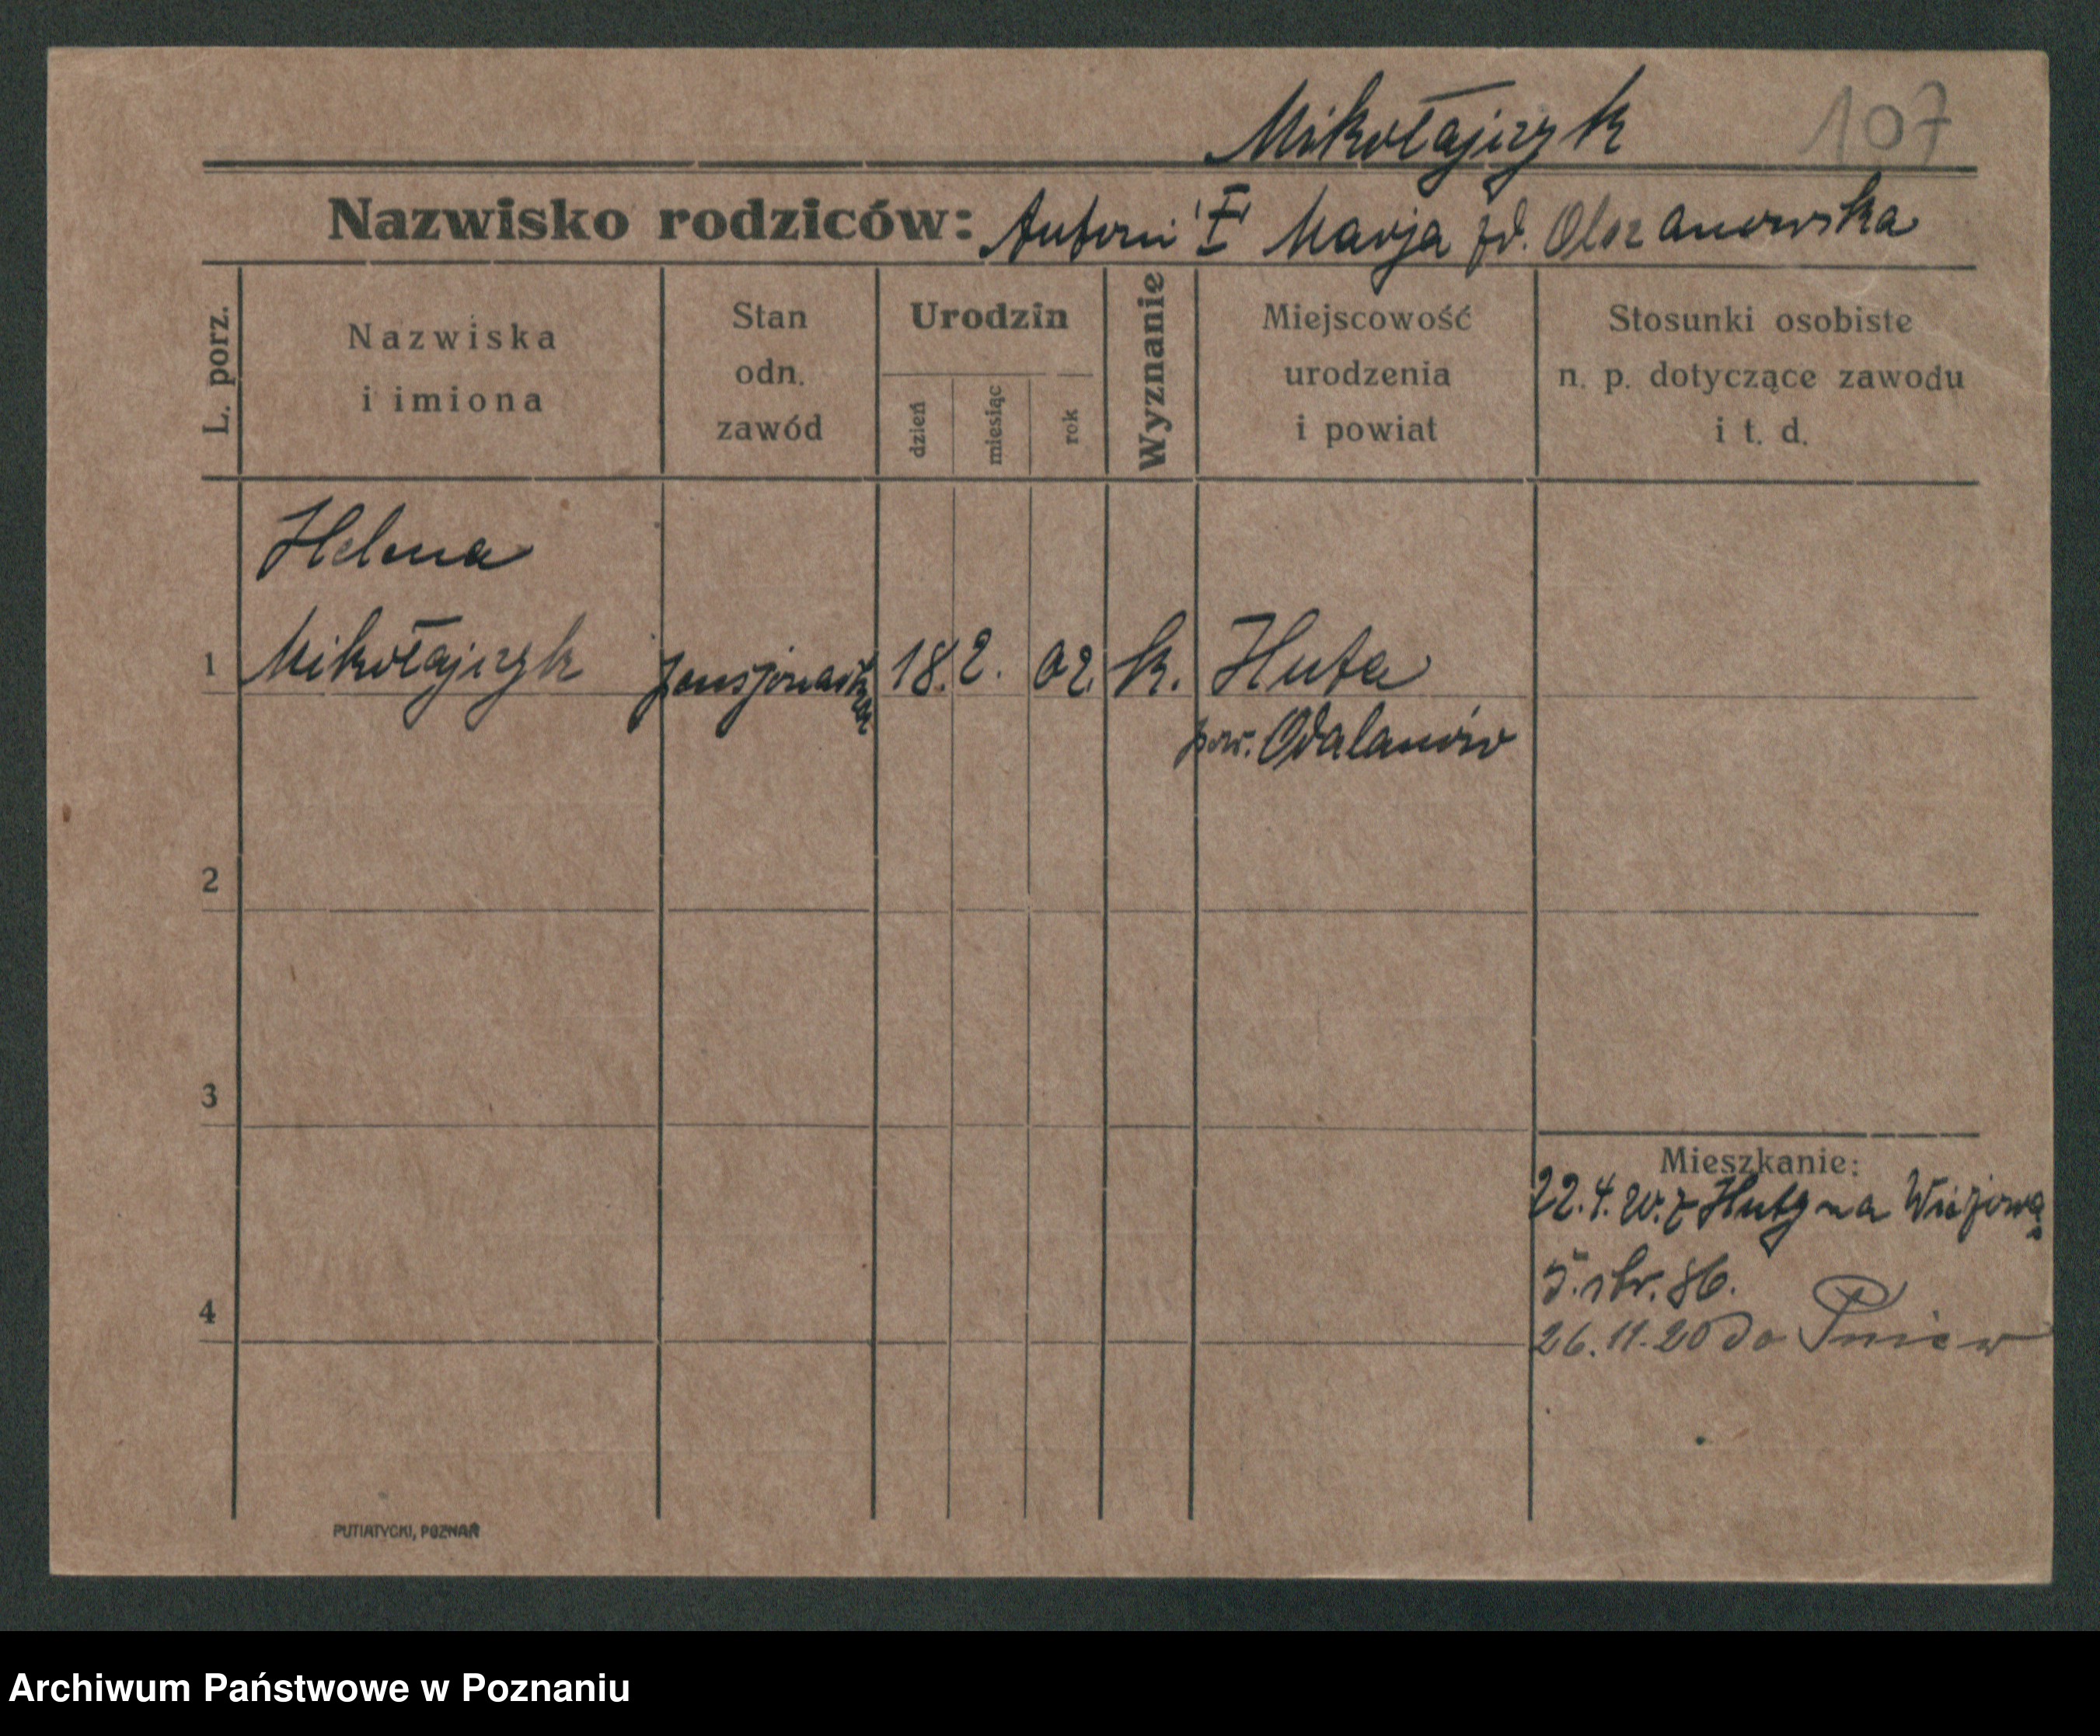 Mikołajczyk 107
Nazwisko rodziców: Antoni i Marja zd. Olszanowska
L. porz.
Nazwiska
i imiona
Stan
odn.
zawód
Urodzin
dzień
miesiąc
rok
Wyznanie
Miejscowość
urodzenia
i powiat
Stosunki osobiste
n. p. dotyczące zawodu
i t. d.
Helena
1 Mikołajczyk pensjonarka 18. 2. 02. k. Huta
pow. Odalanów
2
3
Mieszkanie:
22.4.20. z Huty na
5. str. 86.
4
26.11.20 do Pniew
PUTIATYCKI, POZNAŃ
Archiwum Państwowe w Poznaniu